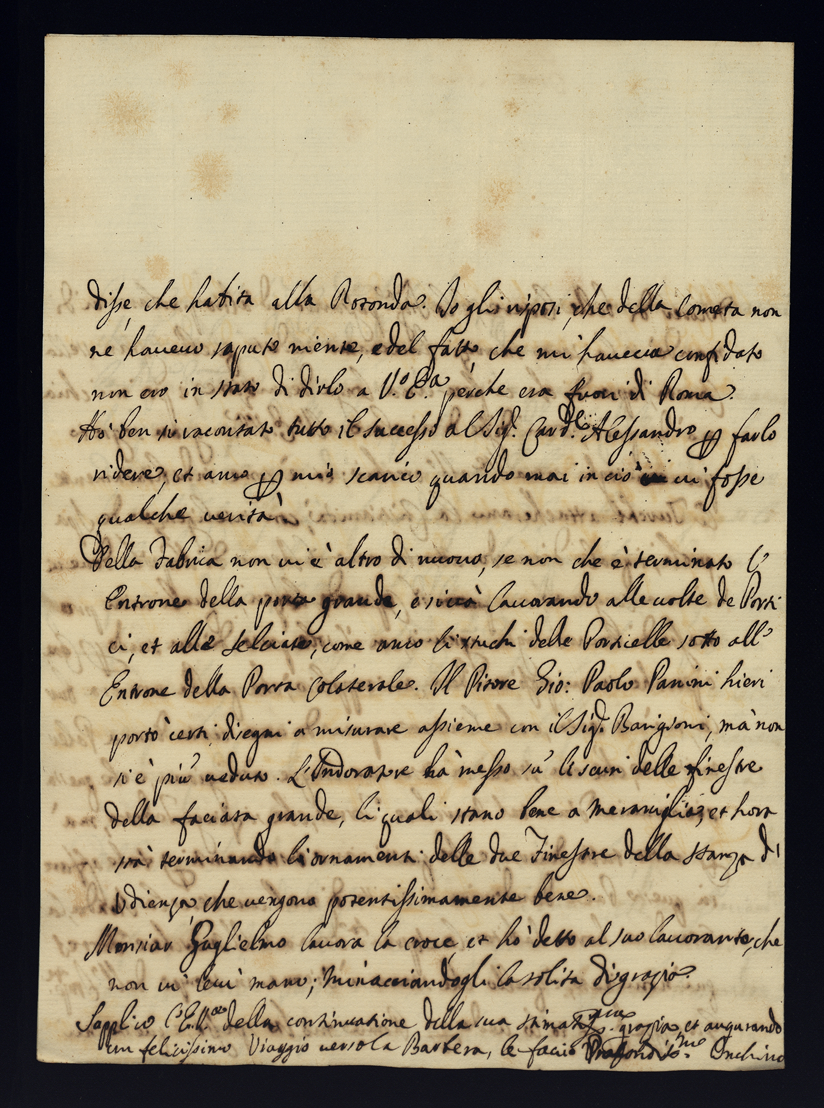 disse, che habita alla Rotonda. Io gli riposi, che della Cometa non
ne havevo saputo niente, e del fatto che mi haveva confidato
non ero in stato di dirlo a V.ª E.ª perche era fuori di Roma.
Hò ben si racontato tutto il successo al Sig.r Card.le Alessandro p farlo
ridere, et anco p mio scarico quando mai in ciò vi fosse
qualche verità.
Della Fabrica non vi è altro di nuovo, se non che è terminato l'
Entrone della porta grande, e si và lavorando alle volte de Porti
ci, et alle selciate, come anco li stuchi delle Porticelle sotto all'
Entrone della Porta Colaterale. Il Pitore Gio: Paolo Panini hieri
portò certi disegni a misurare assieme con il Sig.r Barigioni, mà non
si è più veduto. L'Indoratore hà messo sù li scuri delle finestre
della faciata grande, li quali stano bene a meraviglia, et hora
stà terminando li ornamenti delle due Finestre della stanza d'
Udienza, che vengono potentissimamente bene.
Monsieur Guglielmo lavora la croce, et hò detto al suo lavorante, che
non vi levi mano, minacciandogli la solita disgrazia.
Supplico l'E.V. della continuatione della sua stimatis.ma grazia, et augurando
un felicissimo Viaggio verso la Barbera, le facio Profondis.mo Inchino